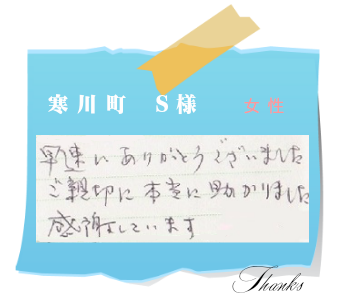 寒川町　S様　女性
早速にありがとうございました
ご親切に本当に助かりました
感謝しています
Thanks